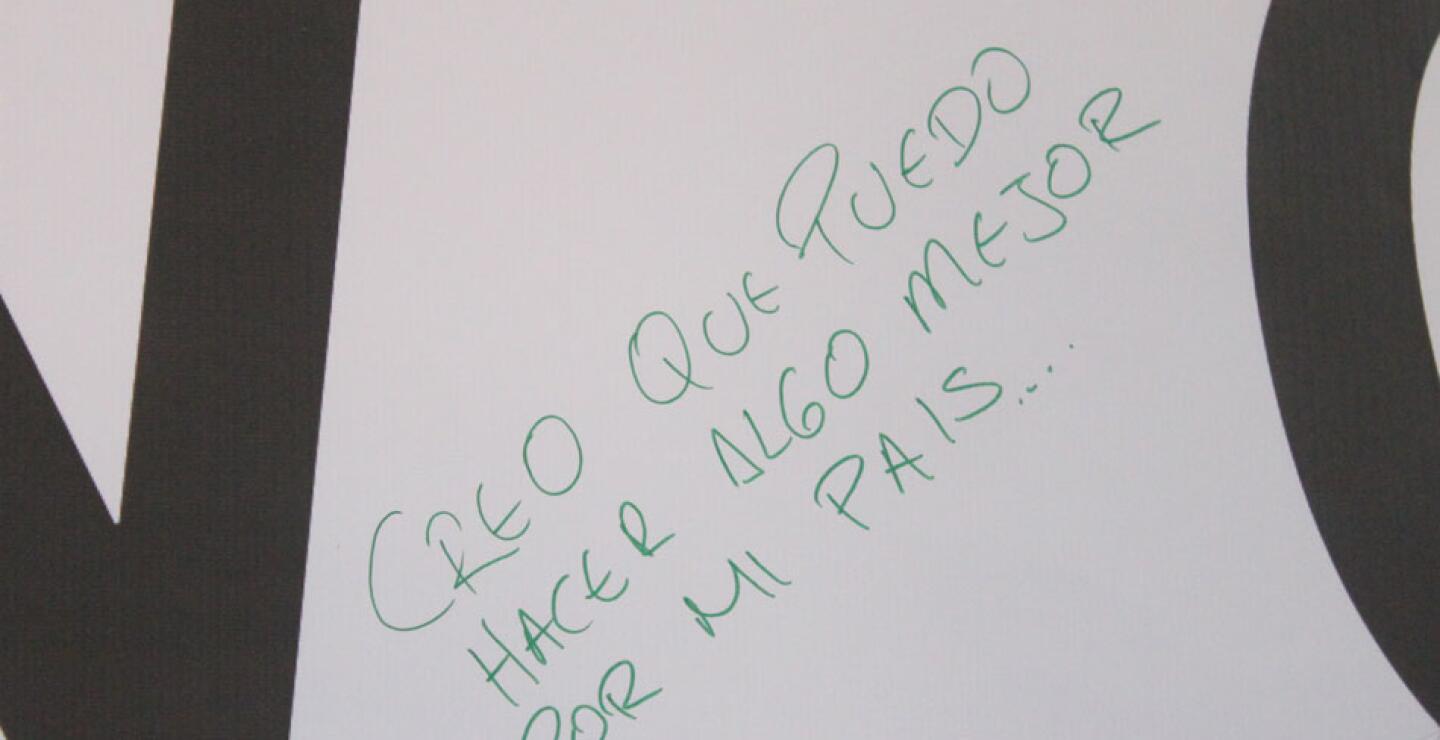 CREO QUE PUEDO
HACER ALGO MEJOR
POR MI PAIS...